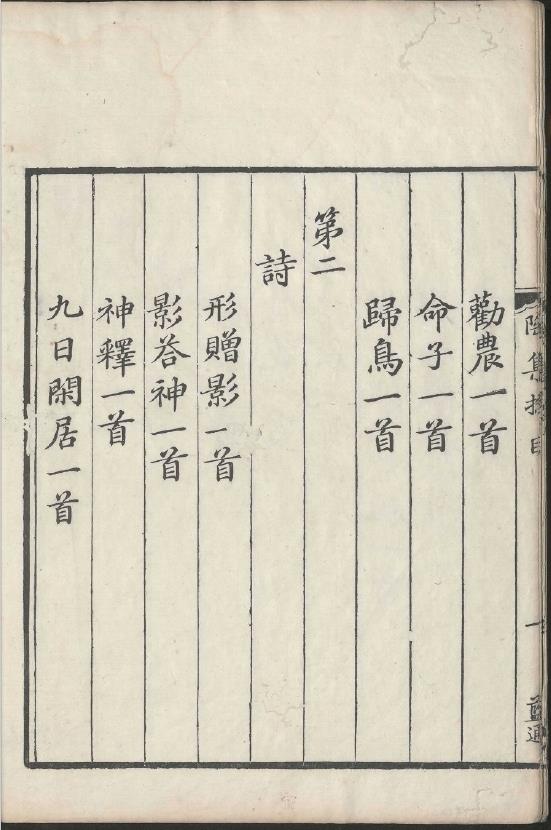 陶集揔目
一
藍通
勸農一首
命子一首
歸鳥一首
第二
詩
形贈影一首
影荅神一首
神釋一首
九日閑居一首